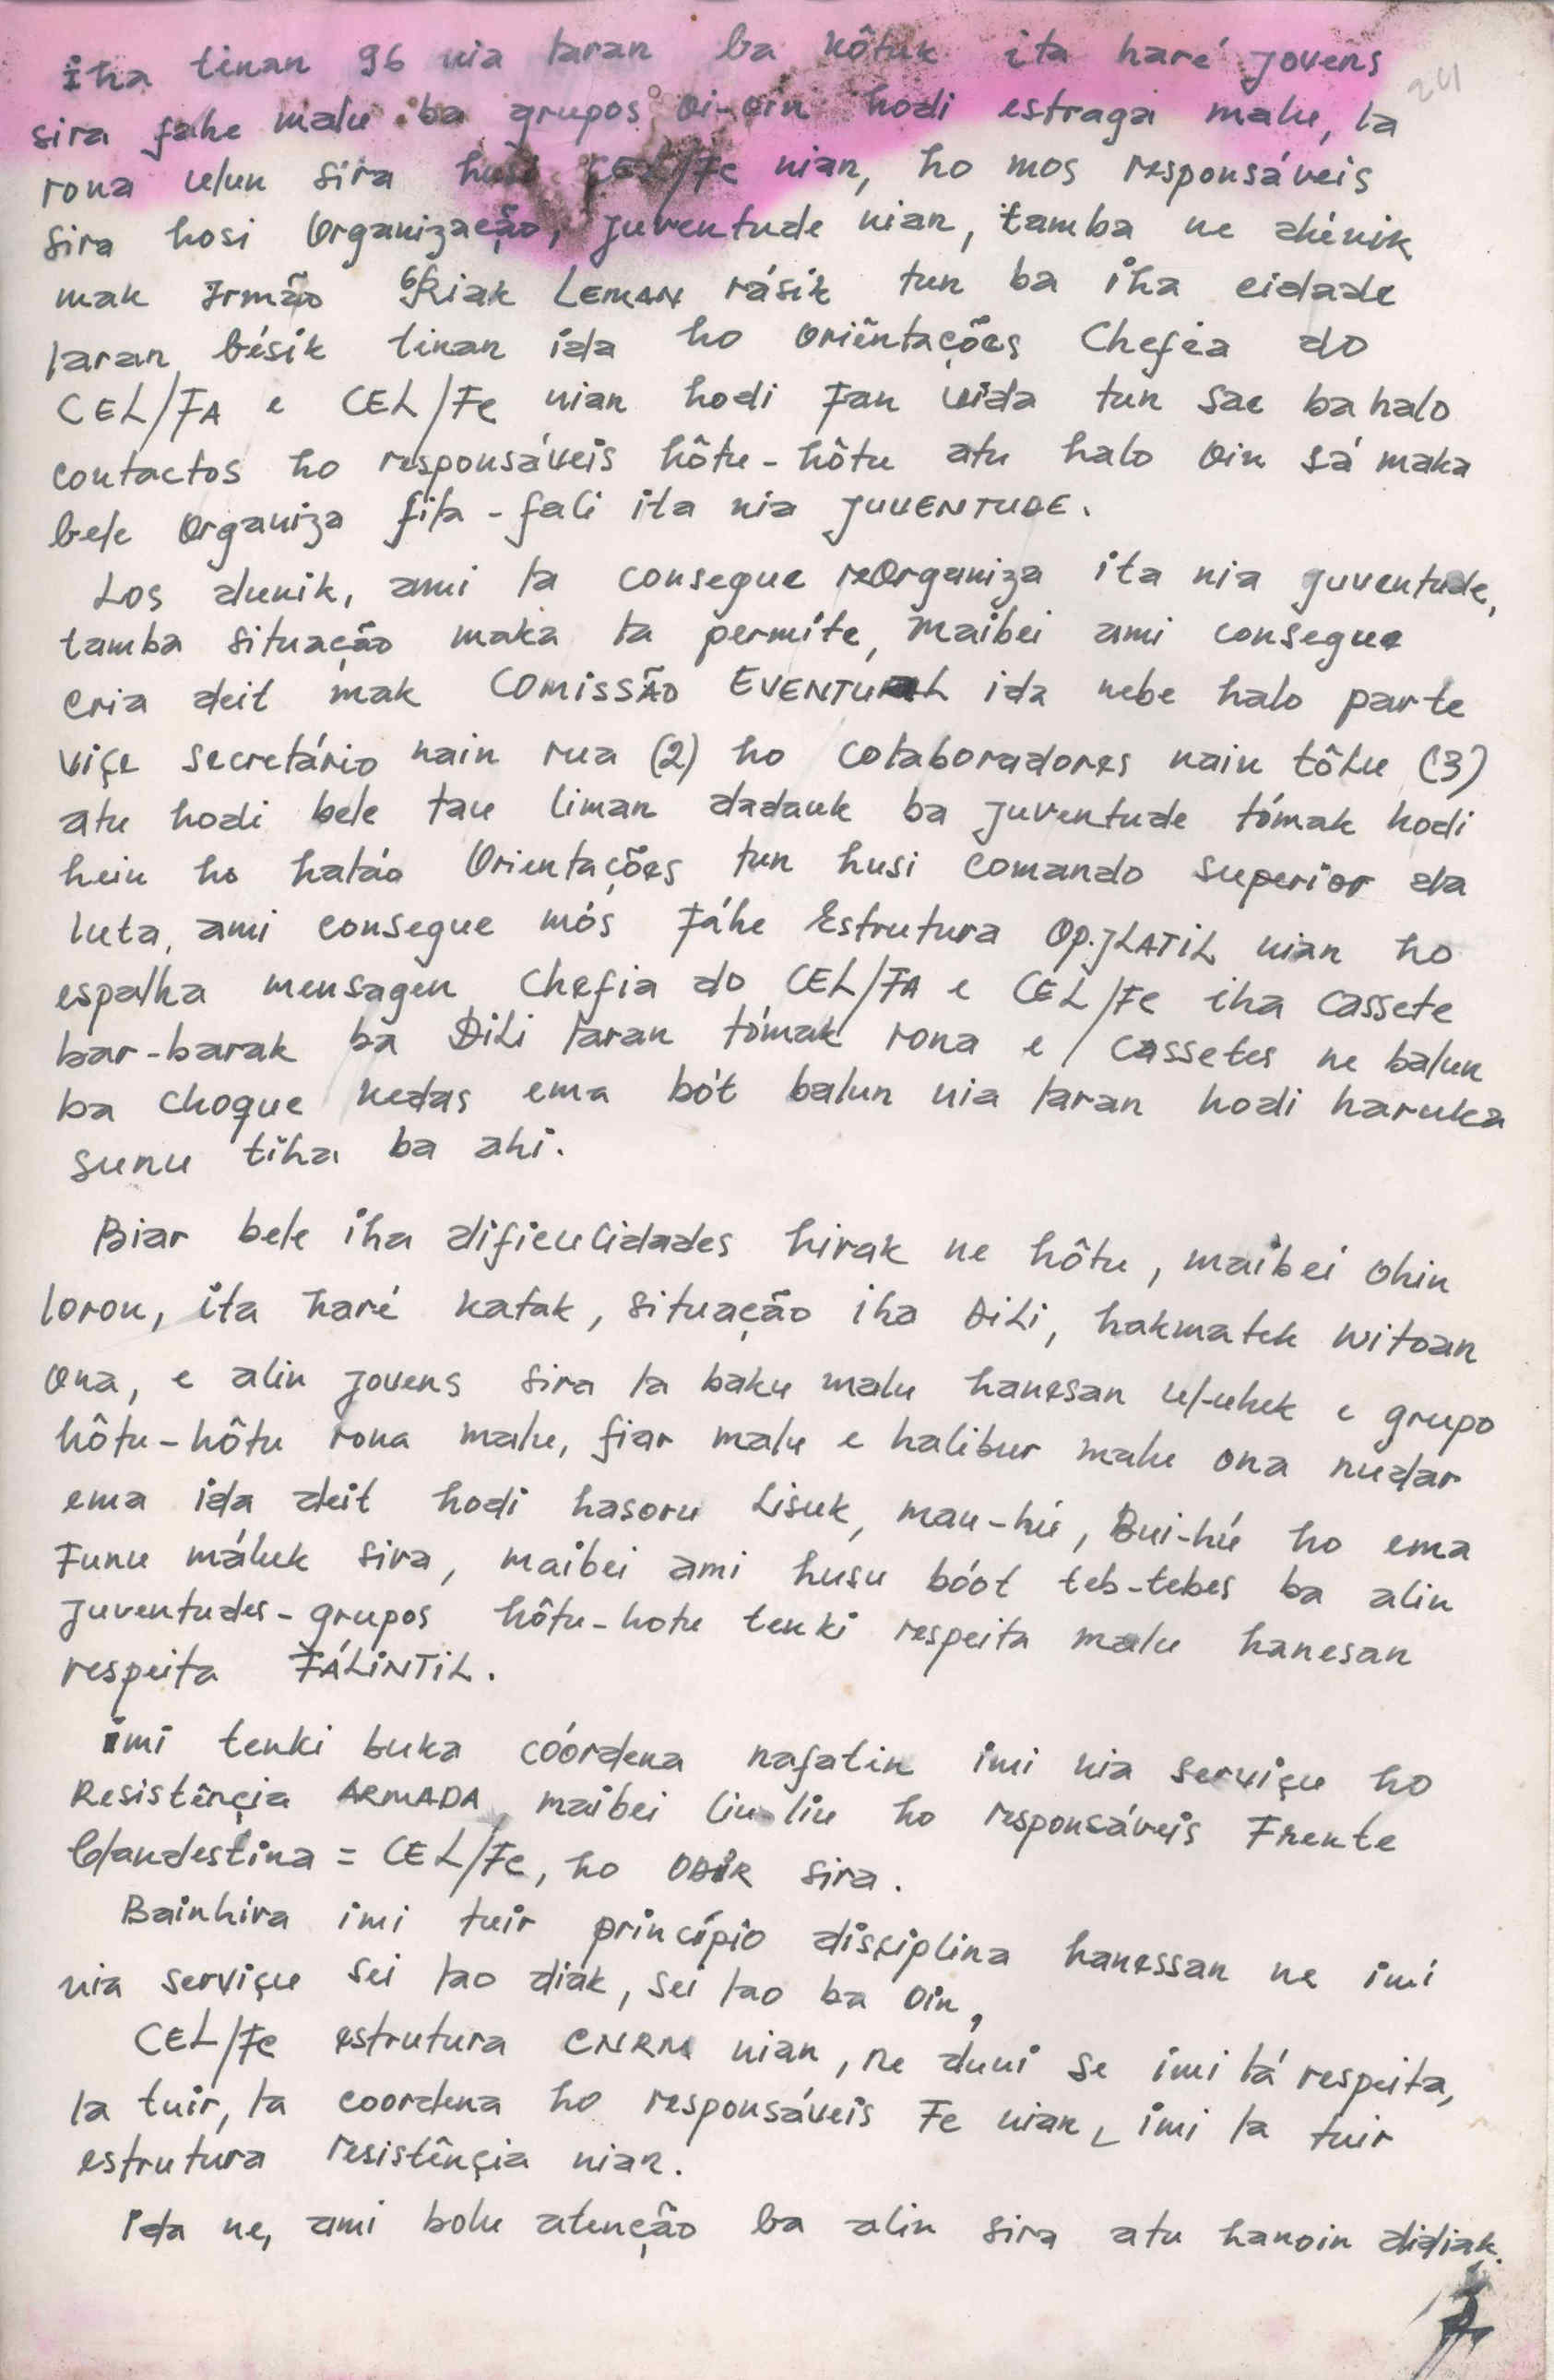 241
iha tinan 96 nia laran ba kôtuk ita haré jovens
sira fahe malu ba grupos oi-oin hodi estraga malu, la
rona ulun sira husi CEL/FC nian, ho mos responsáveis
sira hosi Organização, juventude nian, tamba ne dúnik
mak Irmão Riak LEMAN rásik tun ba iha cidade
laran bésik tinan ida ho Oriêntações Chefia do
CEL/FA e CEL/FC nian hodi Fan vida tun sae ba halo
contactos ho responsáveis hôtu-hôtu atu halo oin sá maka
bele Organiza fila-fali ita nia JUVENTUDE.
Los dunik, ami la consegue reOrganiza ita nia juventude,
tamba situação maka la permite, maibei ami consegue
cria deit mak COMISSÃO EVENTUAL ida nebe halo parte
viçe secretário nain rua (2) ho colaboradores nain tôlu (3)
atu hodi bele tau liman dadauk ba juventude tómak hodi
hein ho hatáo Orientações tun husi comando superior da
luta, ami consegue mós Fáhe Estrutura OP.JLATIL nian ho
espalha mensagen Chefia do CEL/FA e CEL/FC iha cassete
bar-barak ba DiLi laran tómak rona e cassetes ne balun
ba choque kedas ema bót balun nia laran hodi haruka
sunu tiha ba ahi.
Biar bele iha dificulidades hirak ne hôtu, maibei ohin
loron, ita haré katak, situação iha DiLi, hakmatek witoan
ona, e alin jovens sira la baku malu hanesan ul-uluk e grupo
hôtu-hôtu rona malu, fiar malu e halibur malu ona nudar
ema ida deit hodi hasoru Lisuk, mau-hú, Bui-hú ho ema
Funu máluk sira, maibei ami husu bóot teb-tebes ba alin
juventudes-grupos hôtu-hotu tenki respeita malu hanesan
respeita FÁLiNTiL.
imi tenki buka cóórdena nafatin imi nia serviçu ho
Resistênçia ARMADA, maibei liu-liu ho responsáveis Frente
Clandestina = CEL/FC, ho ODIR sira.
Bainhira imi tuir princípio disçiplina hanessan ne imi
nia serviçu sei lao diák, sei lao ba oin,
CEL/FC estrutura CNRM nian, ne duni se imi lá respeita,
la tuir, la coordena ho responsáveis FC nian, imi la tuir
estrutura resistênçia nian.
ida ne, ami bolu atenção ba alin sira atu hanoin didiak.